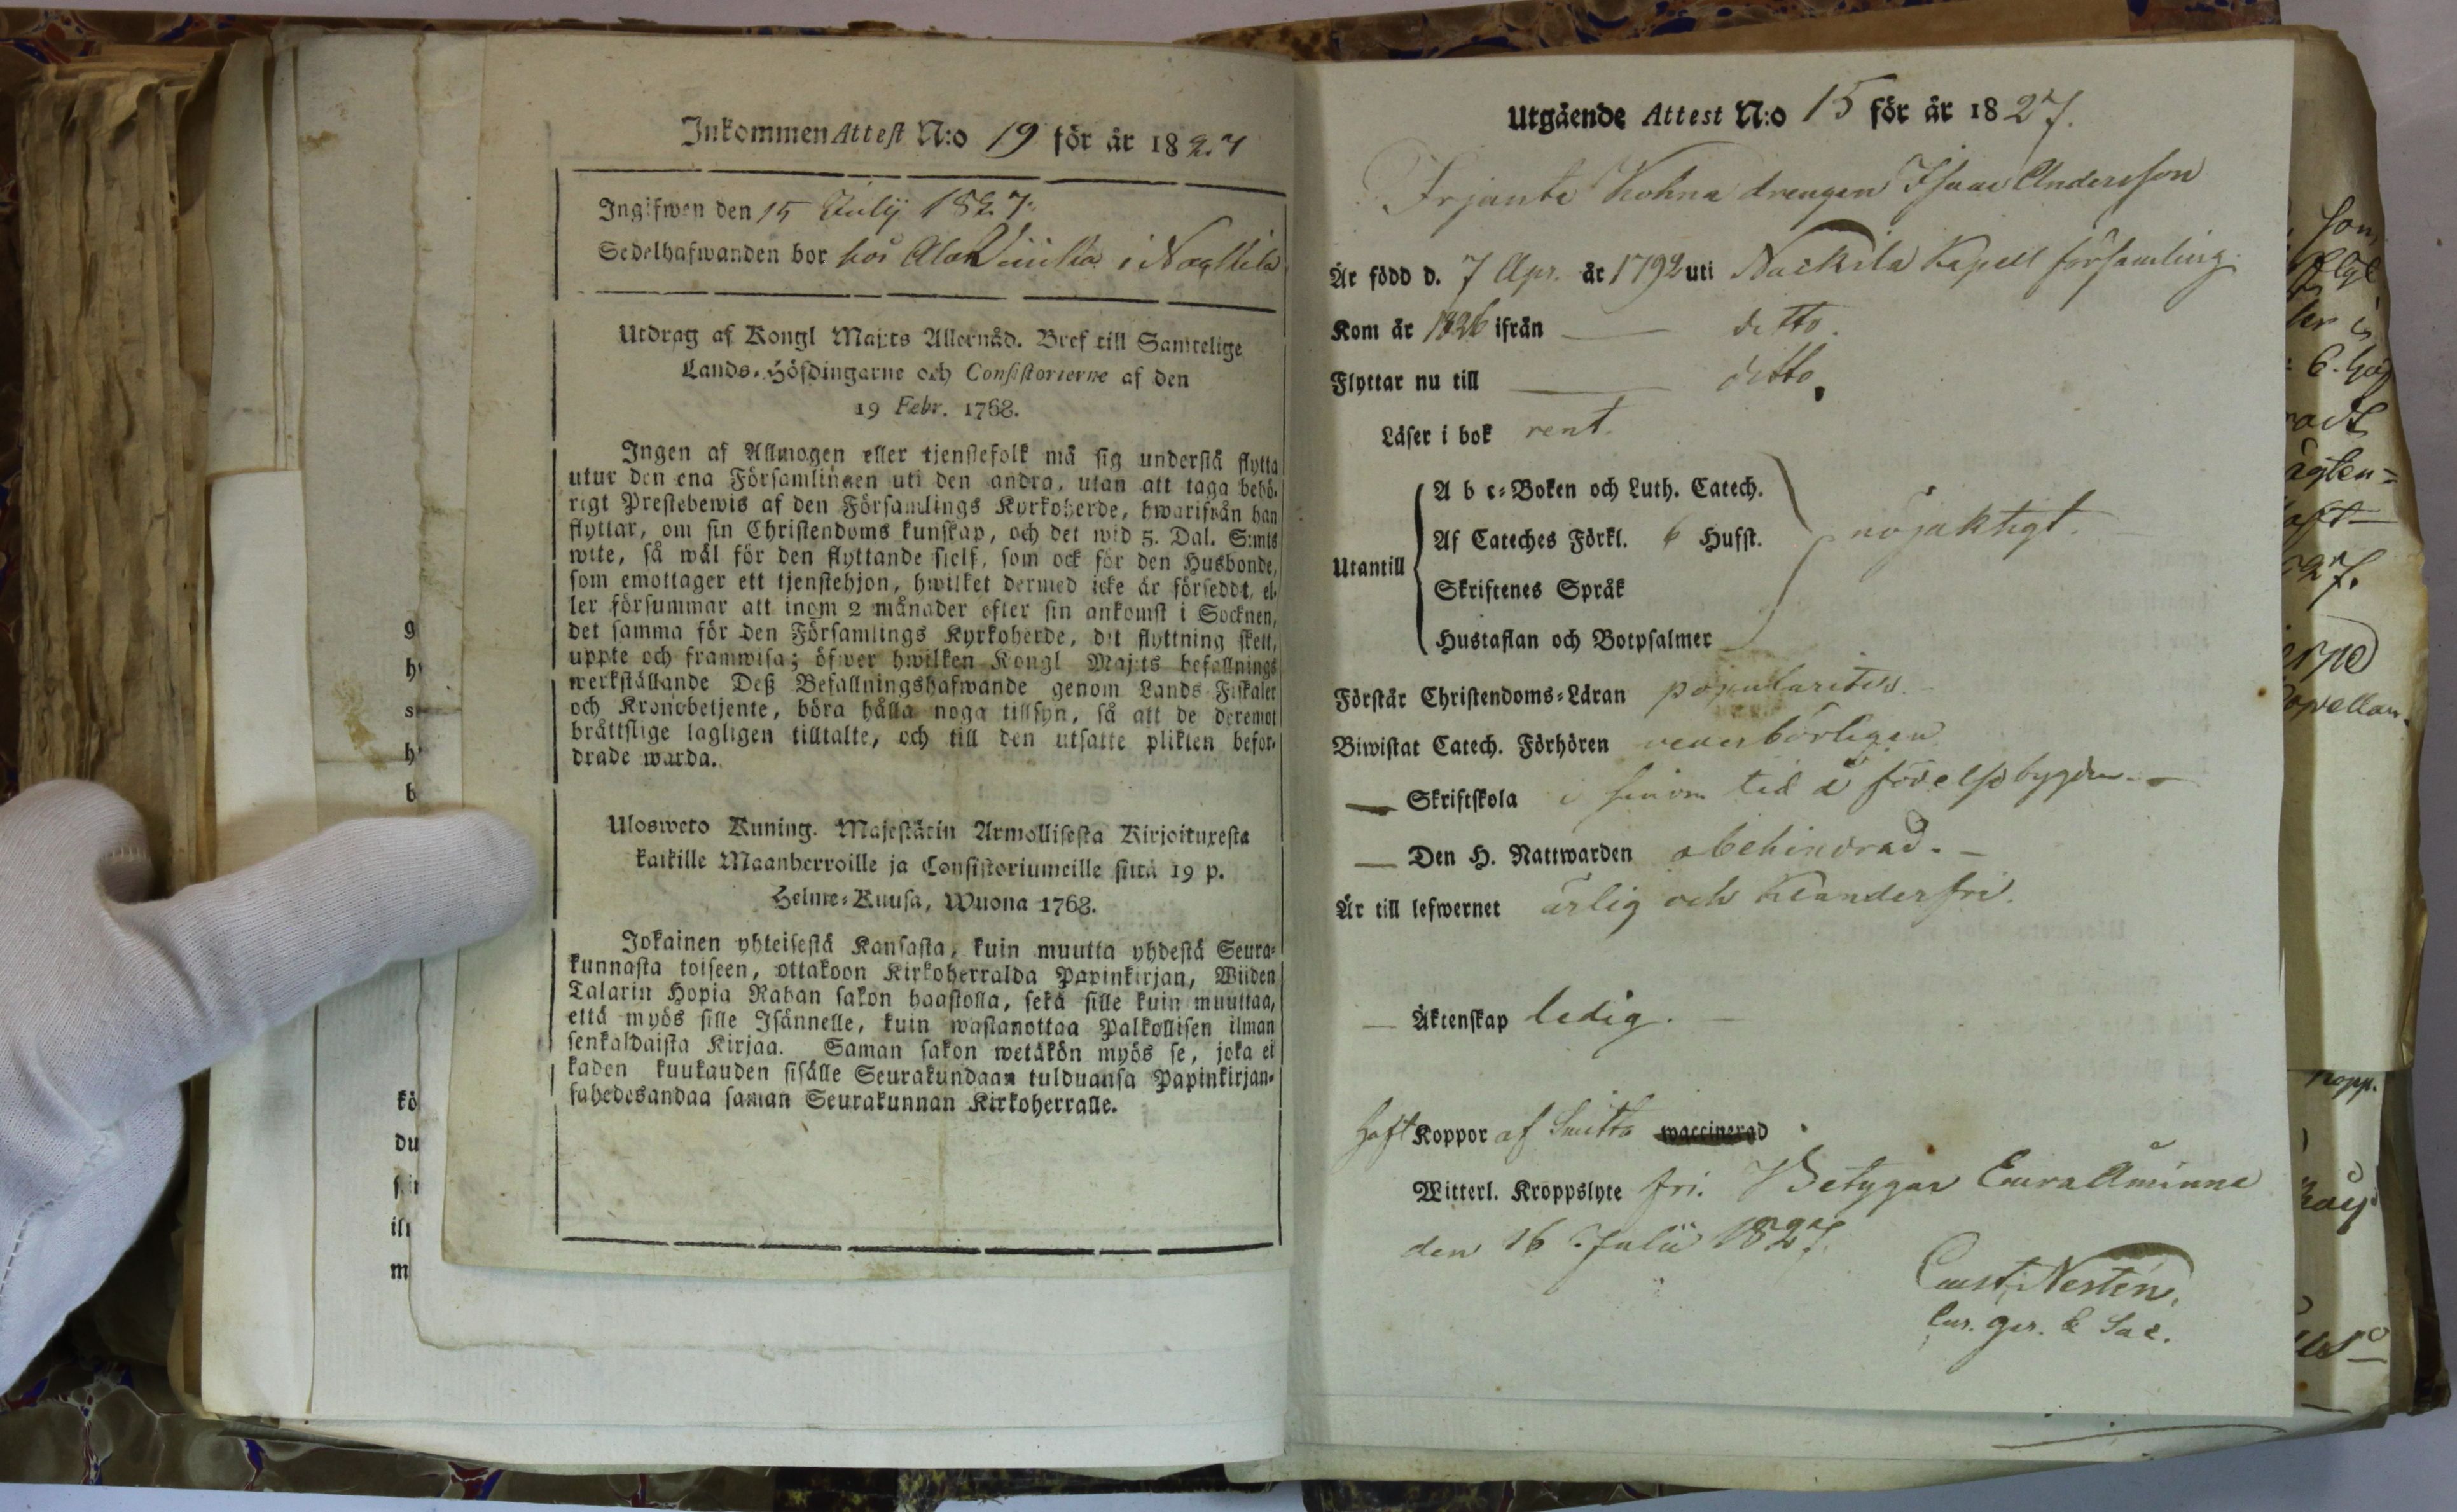 Inkommen Attest N:o 19 för år 1827
Ingifwen den 15 Julij 1827.
Sedelhafwanden bor hos Ala i Nackila
Utdrag af Kongl Maj:ts Allernåd. Bref till Samtelige
Lands-Höfdingarne och Consistorierne af den
19 Febr. 1768.
Ingen af Allmogen eller tjenstefolk må sig understå flytta
utur den ena Församlingen uti den andra, utan att taga behö-
rigt Prestebewis af den Församlings Kyrkoherde, hwarifrån han
flyttar, om sin Christendoms kunskap, och det wid 5. Dal. S:mts
wite, så wäl för den flyttande sielf, som ock för den Husbonde,
som emottager ett tjenstehjon, hwilket dermed icke är förseddt, el-
ler försummar att inom 2 månader efter sin ankomst i Socknen,
det samma för den Församlings Kyrkoherde, dit flyttning skett,
uppte och framwisa; öfwer hwilken Kongl Maj:ts befallnings
werkställande Deß Befallningshafwande genom Lands Fiskaler
och Kronobetjente, böra hålla noga tillsyn, så att de deremot
bråttslige lagligen tilltalte, och till den utsatte plikten befor-
drade warda.
Ulosweto Kuning. Majestätin Armollisesta Kirjoituxesta
kaikille Maanherroille ja Consistoriumeille siitä 19 p.
Helme-Kuusa, Wuona 1768.
Jokainen yhteisestä Kansasta, kuin muutta yhdestä Seura-
kunnasta toiseen, ottakoon Kirkoherralda Papinkirjan, Wiiden
Talarin Hopia Rahan sakon haastolla, sekä sille kuin muuttaa,
että myös sille Isännelle, kuin wastanottaa Palkollisen ilman
senkaldaista Kirjaa. Saman sakon wetäkön myös se, joka ei
kaden kuukauden sisälle Seurakundaan tulduansa Papinkirjan-
sahedesandaa saman Seurakunnan Kirkoherralle.
Utgående Attest N:o 15 för år 1827.
Kohna drengen Isaac Andersson
Är född d. 7 Apr. år 1792 uti Nackila Kapell församling.
Kom år 1826 ifrån — ditto.
Flyttar nu till — ditto.
Läser i bok rent.
A b c-Boken och Luth. Catech.
Af Cateches Förkl. 6 Hufst.
Utantill
nöjaktigt.
Skriftenes Språk
Hustaflan och Botpsalmer
Förstår Christendoms-Läran populariter.
Biwistat Catech. Förhören vederbörligen
— Skriftskola i sinom tid i födelsebygden.
— Den H. Nattwarden obehindrad.
Är till lefwernet ärlig och klanderfri.
— Äktenskap ledig.
Haft Koppor af Smitto waccinerad
Witterl. Kroppslyte fri. Betygar Euraåminne
den 16 Julii 1827.
Nestén.
Cur. ger. & Sac.